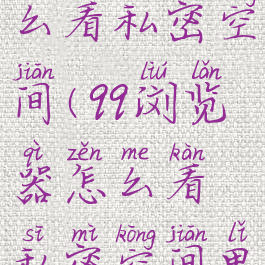 么看私密空
jiān liú lǎn
间(99浏览
qì zěn me kàn
器怎么看
sī mì kōng jiān lǐ
私密空间里